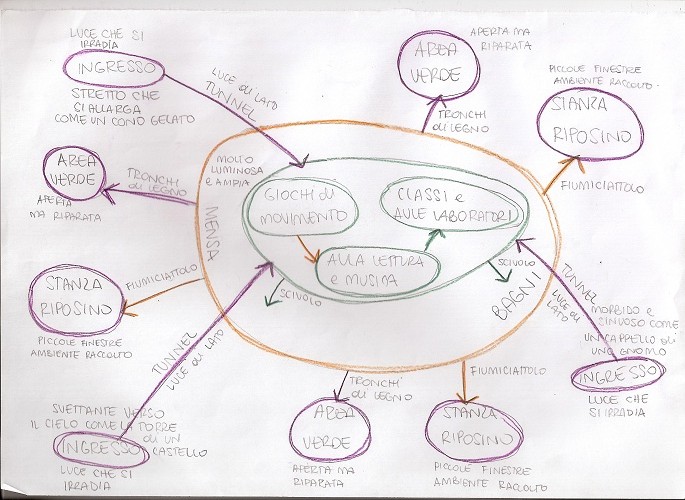 LUCE CHE SI
IRRADIA
INGRESSO
STRETTO CHE
SI ALLARGA
COME UN CONO GELATO
LUCE di LATO
TUNNEL
APERTA MA
RIPARATA
AREA
VERDE
TRONCHI
di LEGNO
PICCOLE FINESTRE
AMBIENTE RACCOLTO
STANZA
RIPOSINO
FIUMICIATTOLO
AREA
VERDE
APERTA
MA RIPARATA
TRONCHI
di LEGNO
MOLTO
LUMINOSA
E AMPIA
MENSA
GIOCHI di
MOVIMENTO
CLASSI e
AULE LABORATORI
AULA LETTURA
e MUSICA
SCIVOLO
SCIVOLO
BAGNI
STANZA
RIPOSINO
FIUMICIATTOLO
PICCOLE FINESTRE
AMBIENTE RACCOLTO
TUNNEL
LUCE di LATO
TUNNEL
LUCE di
LATO
MORBIDO e
SINUOSO COME
UN CAPPELLO di
UNO GNOMO
INGRESSO
LUCE CHE
SI IRRADIA
SVETTANTE VERSO
IL CIELO COME LA TORRE
di UN
CASTELLO
INGRESSO
LUCE CHE SI
IRRADIA
TRONCHI
di LEGNO
AREA
VERDE
APERTA MA
RIPARATA
FIUMICIATTOLO
STANZA
RIPOSINO
PICCOLE FINESTRE
AMBIENTE RACCOLTO